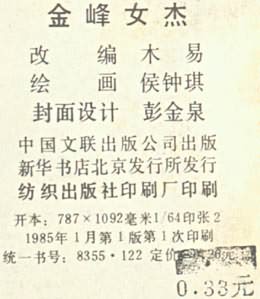 金峰女杰
改编 木易
绘画 侯钟琪
封面设计 彭金泉
中国文联出版公司出版
新华书店北京发行所发行
纺织出版社印刷厂印刷
开本:787×1092毫米1/64印张2
1985年1月第1版第1次印刷
统一书号:8355·122 定价
0.33元